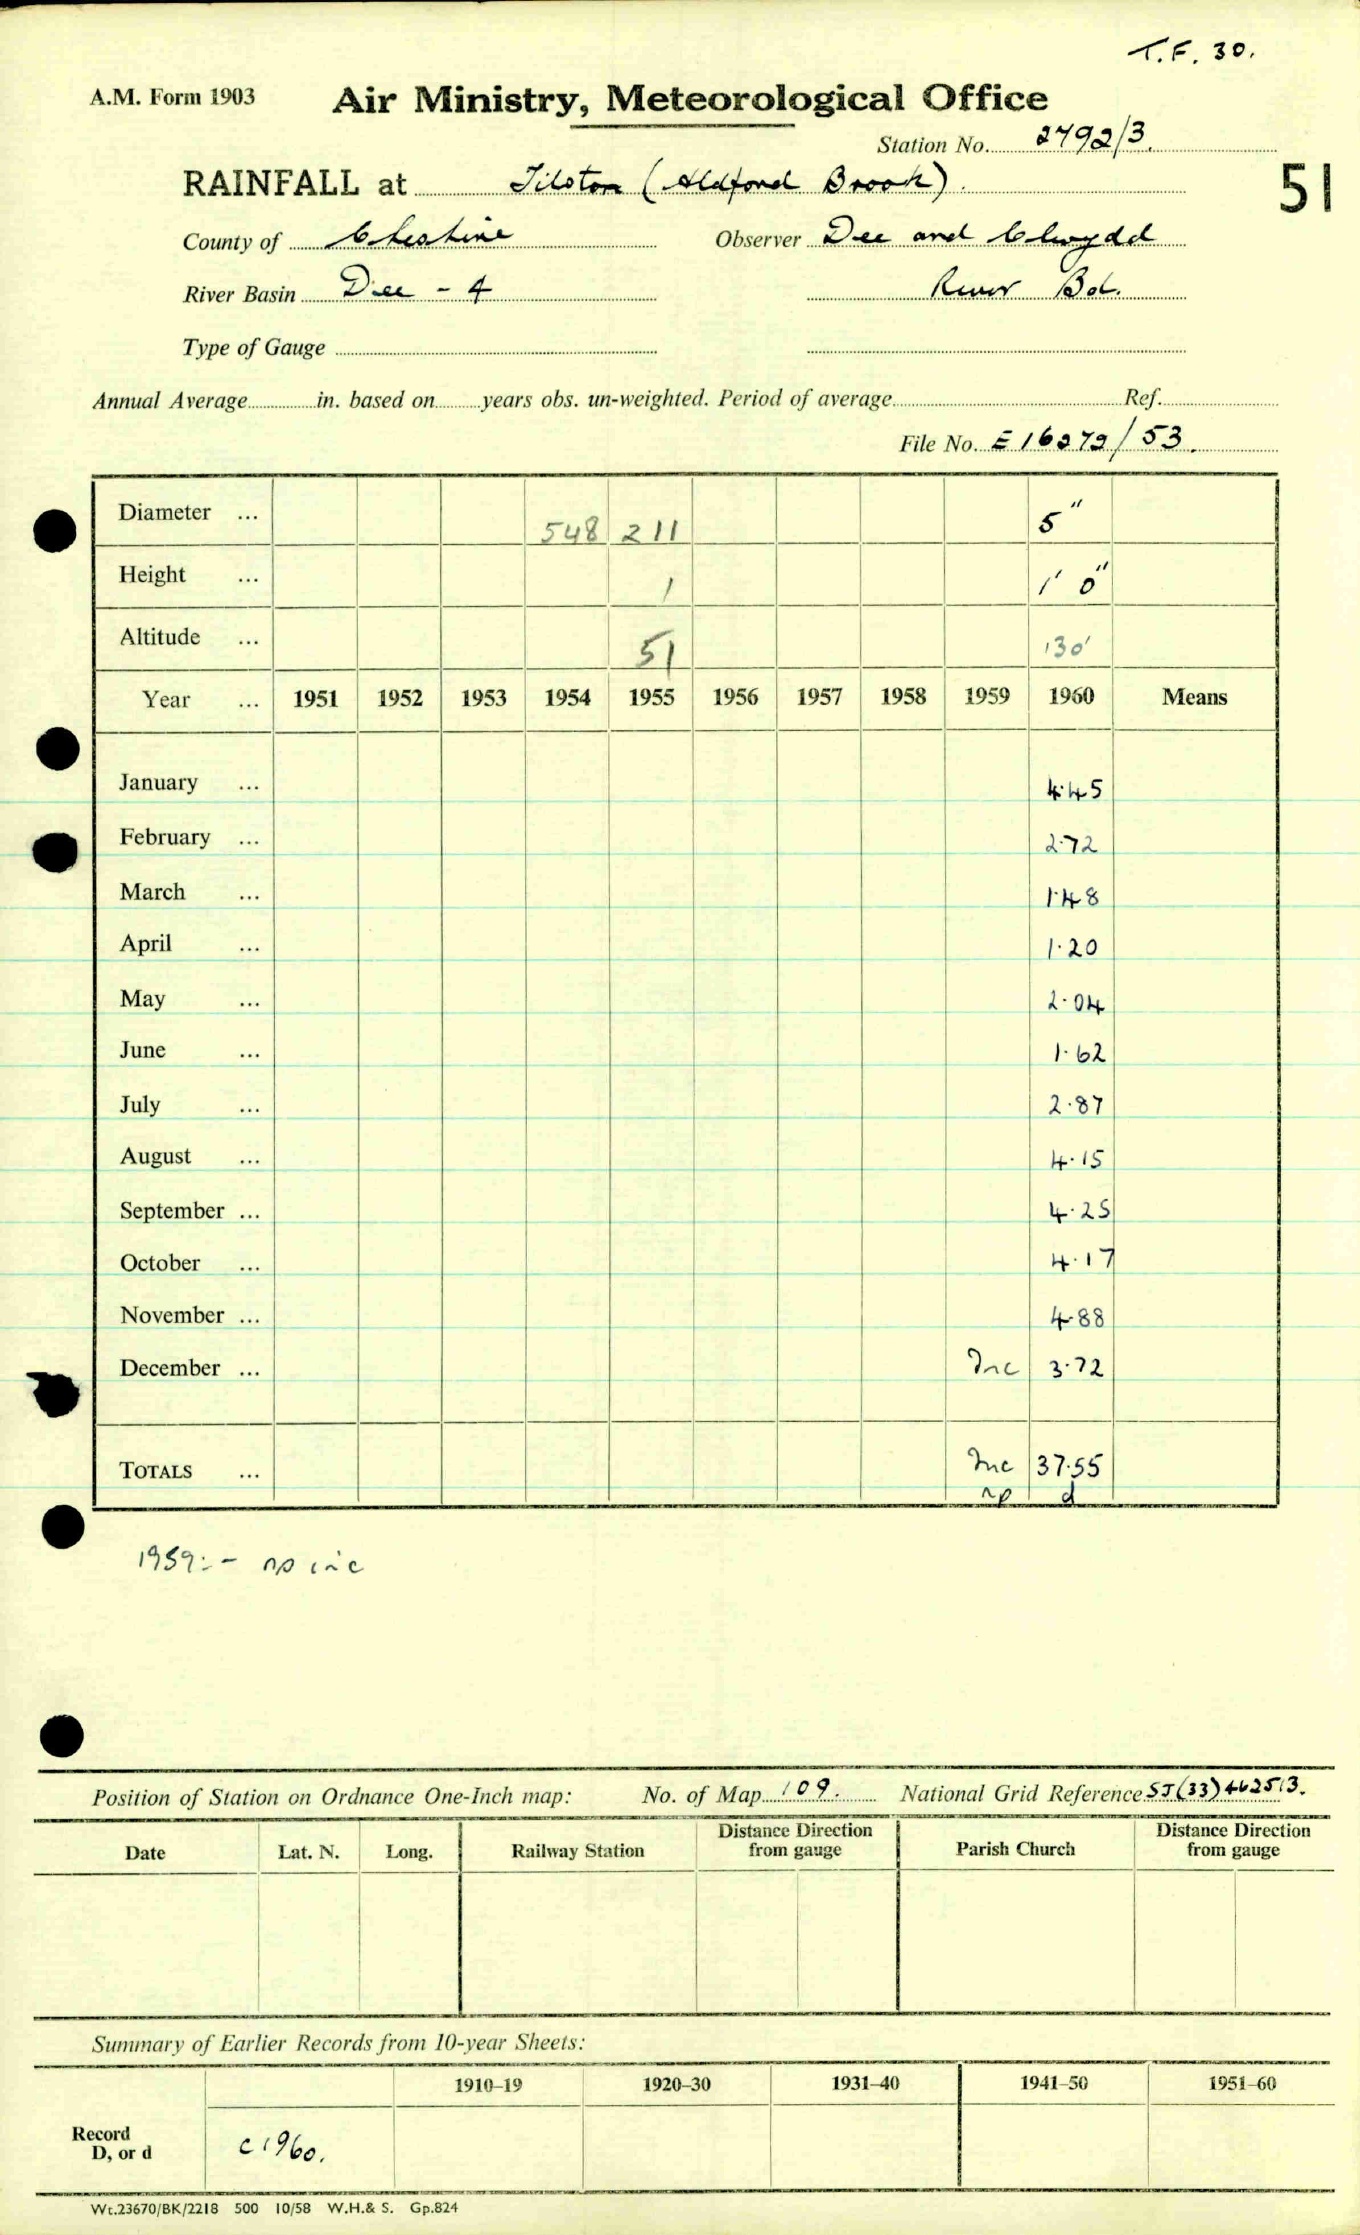 T.F. 30.
A.M. Form 1903 Air Ministry, Meteorological Office
Station No. 2792/3.
RAINFALL at Tilston (Aldford Brook). 51
County of Cheshire Observer Dee and Clwydd
River Basin Dee - 4 River Bd.
Type of Gauge
Annual Average in. based on years obs. un-weighted. Period of average Ref.
File No. E16272/53.
Diameter ... 548 211 5"
Height ... 1 1' 0"
Altitude ... 51 130'
Year ... 1951 1952 1953 1954 1955 1956 1957 1958 1959 1960 Means
January ... 4.45
February ... 2.72
March ... 1.48
April ... 1.20
May ... 2.04
June ... 1.62
July ... 2.87
August ... 4.15
September ... 4.25
October ... 4.17
November ... 4.88
December ... Inc 3.72
TOTALS ... Inc 37.55
np d
1959:- np inc
Position of Station on Ordnance One-Inch map: No. of Map 109. National Grid Reference SJ(33)462513.
Date Lat. N. Long. Railway Station Distance Direction from gauge Parish Church Distance Direction from gauge
Summary of Earlier Records from 10-year Sheets:
1910–19 1920–30 1931–40 1941–50 1951–60
Record
D, or d c1960.
Wt.23670/BK/2218 500 10/58 W.H.& S. Gp.824